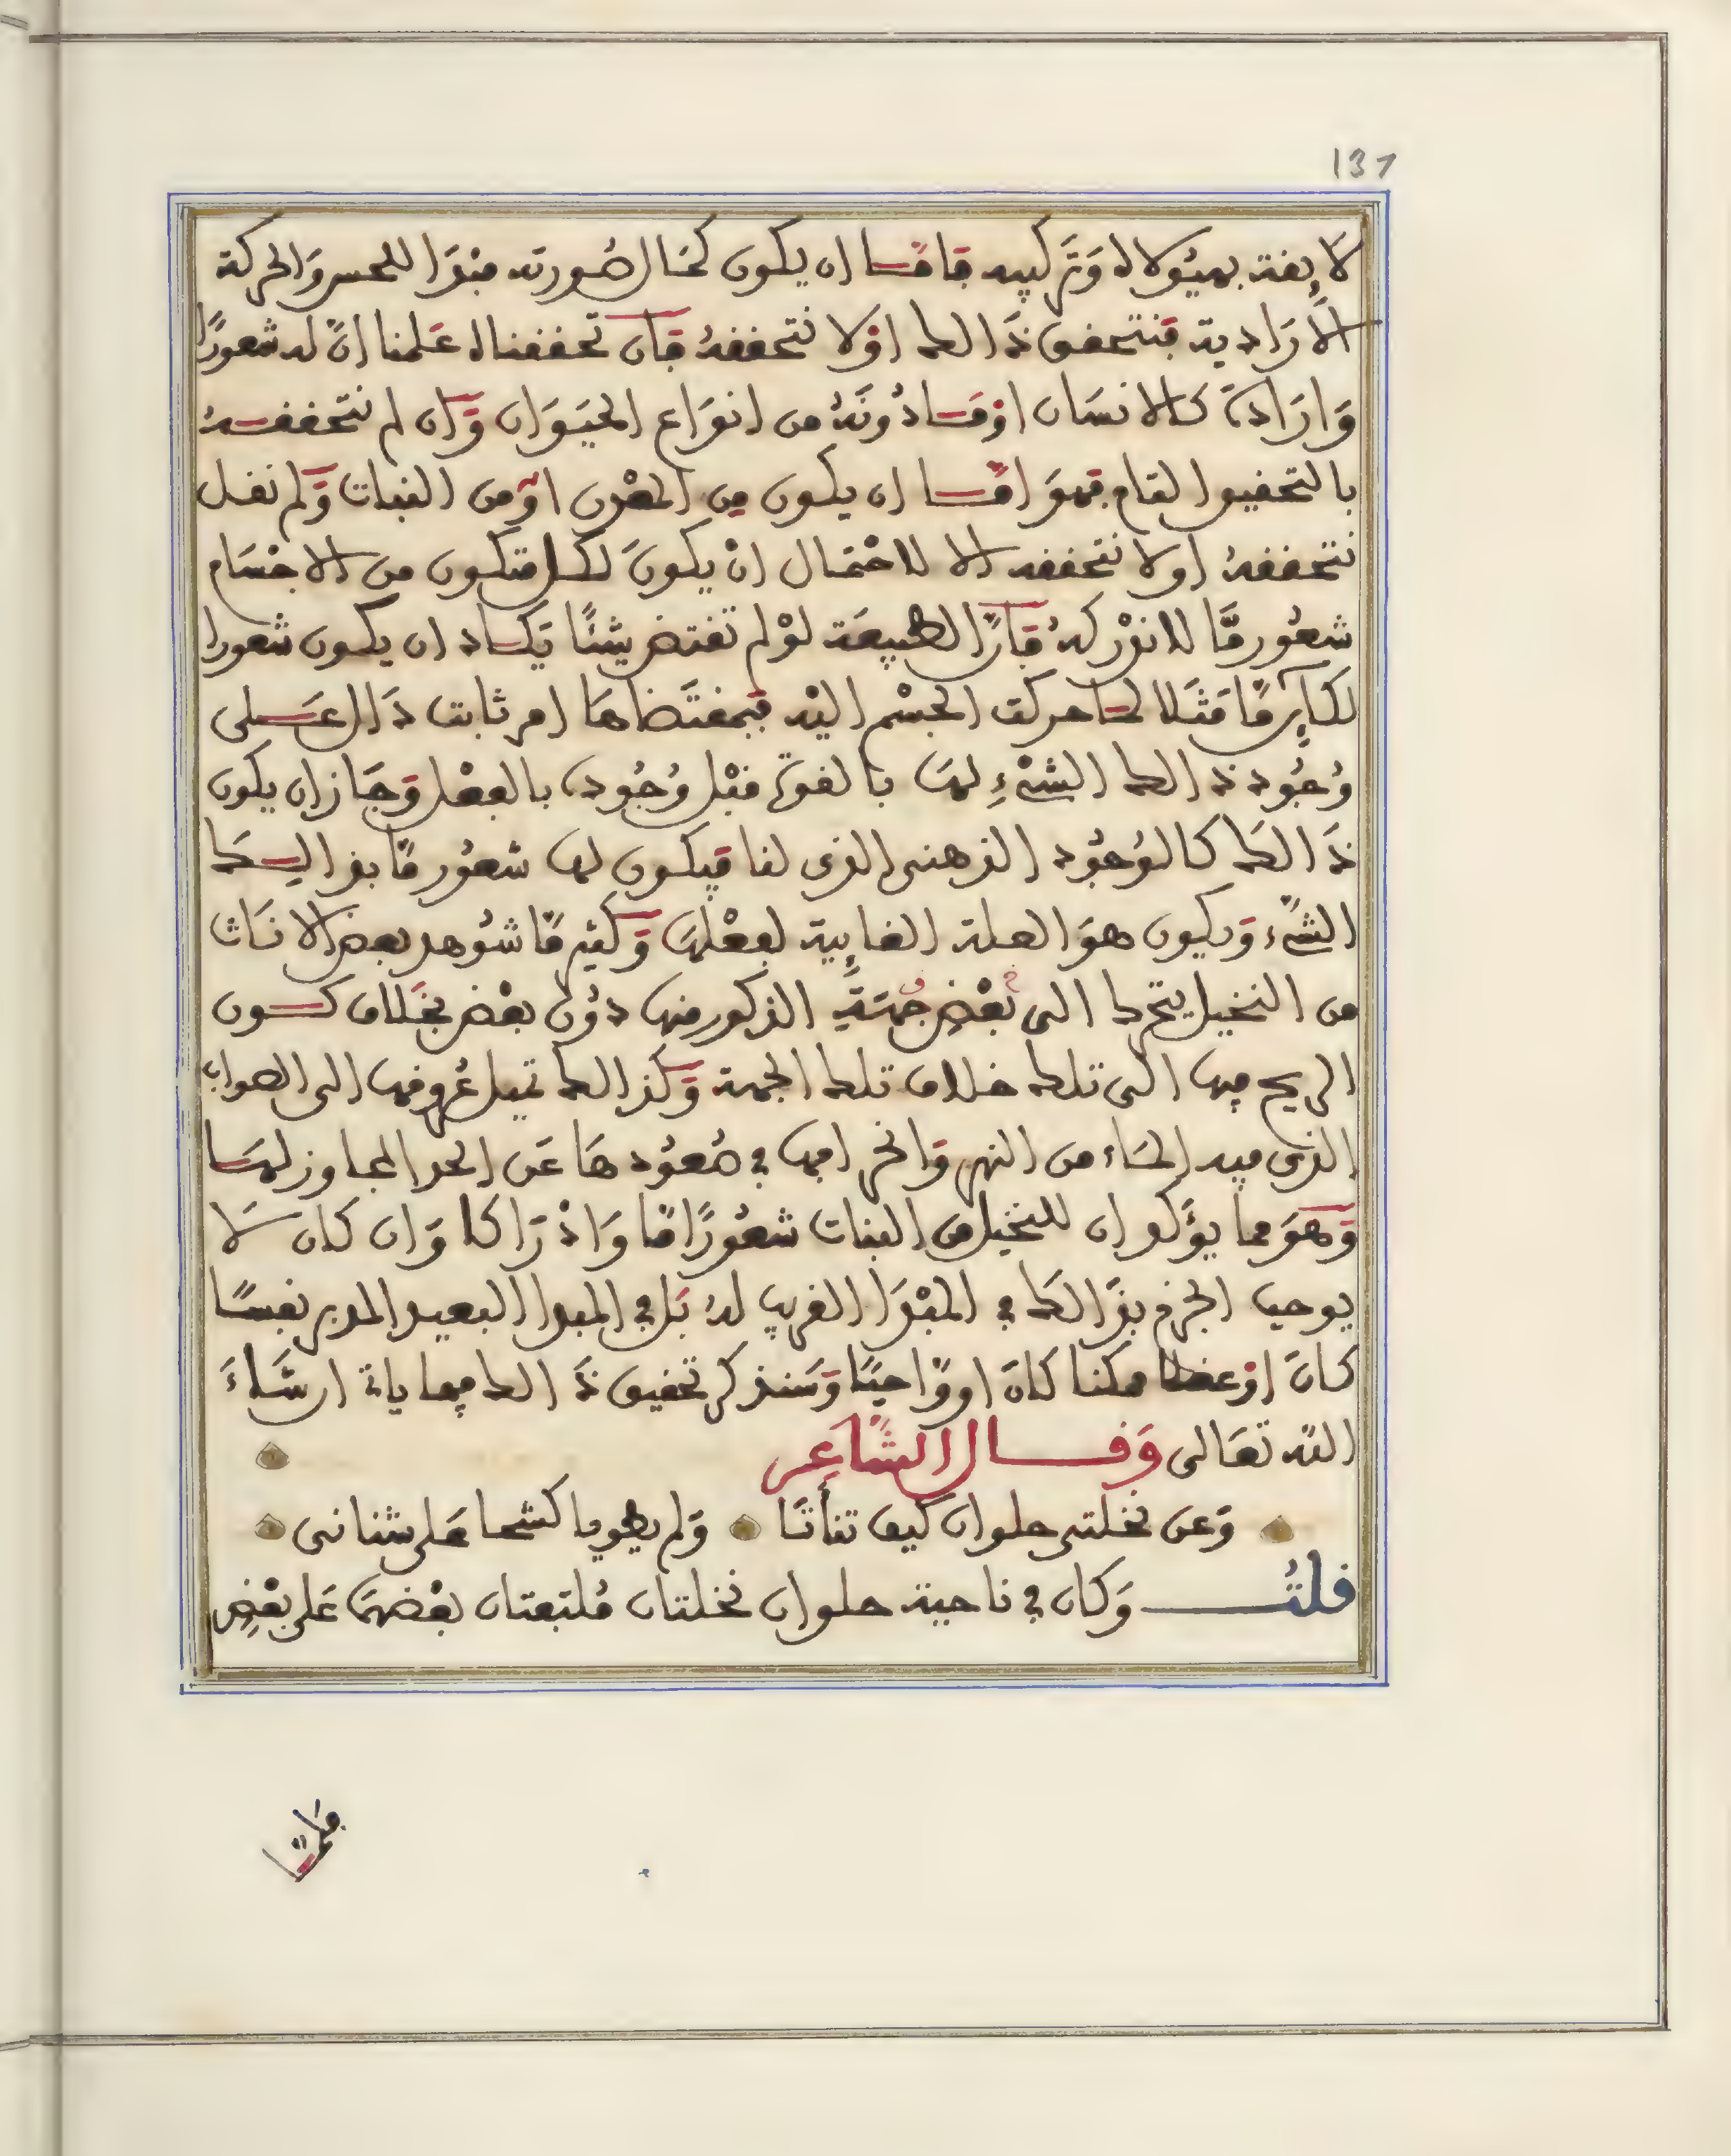 137
لائقة بهيولاه وتركيبه فاما ان يكون كمال صورته مبدا للحس والحركة
الارادية فنتحقق ذالك اولا نتحققه فان تحققناه علمنا ان له شعورا
وارادة كالانسان اوما دونه من انواع الحيوان وان لم نتحققه
بالتحقيق التام فهو اما ان يكون من المعدن او من النبات ولم نقل
نتحققه اولا نتحققه الا لاحتمال ان يكون لكل متكون من الاجسام
شعور ما لا ندركه فان الطبيعة لو لم تقتض شئا يكاد ان يكون شعورا
لكان ما مثلا لما حركت الجسم اليه فبمقتضاها امر ثابت دال على
وجود ذالك الشيء لها بالقوة قبل وجوده بالفعل وجاز ان يكون
ذالك كالوجود الذهني الذي لنا فيكون لها شعور ما بذالك
الشيء ويكون هو العلة الغايية لفعلها وكثير ما شوهد بعض الاناث
من النخيل يتحرك الى بعض جهة الذكور منها دون بعض بخلاف كون
الريح فيها الى تلك خلاف تلك الجهة وكذالك تميل عروقها الى الصواب
الذي فيه الماء من النهر وانحرافها في صعودها عن الحد المجاوز لها
وهو مما يؤكد ان للنخيل من النبات شعورا ما وادراكا وان كان لا
يوجب الجزم بذالك في المبدا القريب له بل في المبدا البعيد المدبر نفسا
كان او عقلا ممكنا كان او واجبا وسنذكر تحقيق ذالك فيما ياتي ان شاء
الله تعالى وقال الشاعر
وعن نخلتي حلوان كيف تناتا ولم يطويا كشحا على شناني
قلت وكان في ناحية حلوان نخلتان ملتفتان بعضهما على بعض
فلما